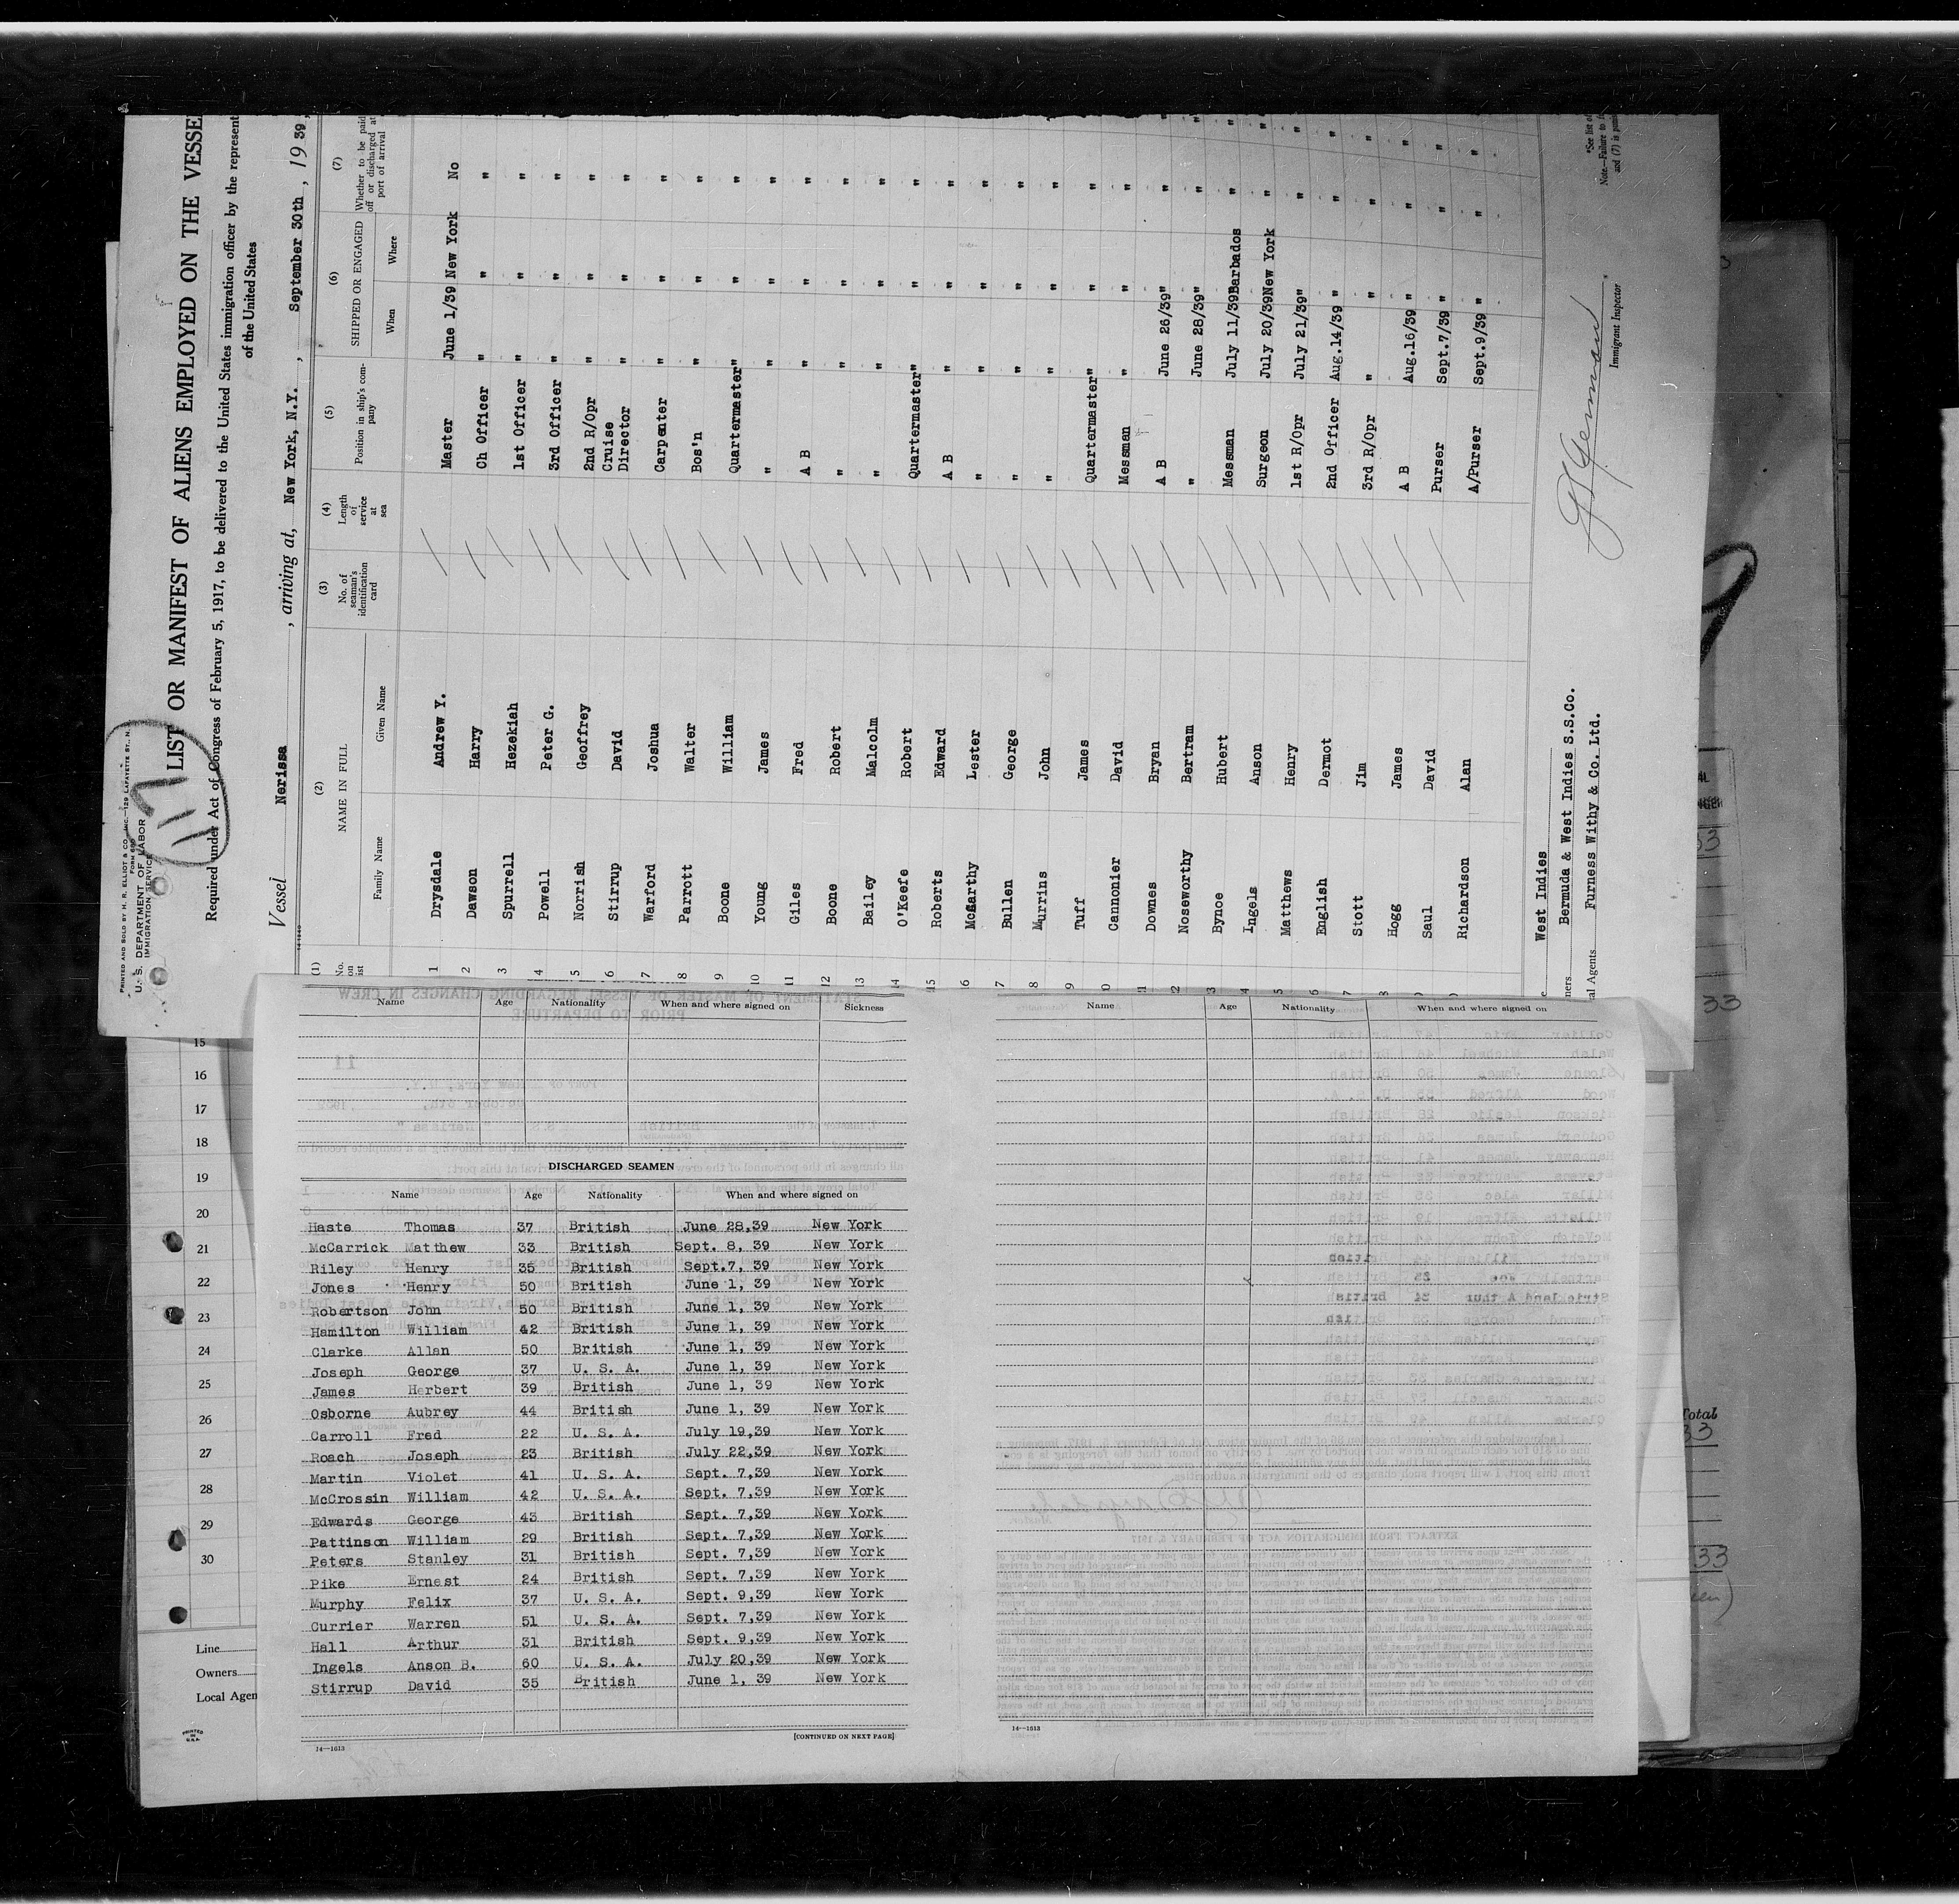 PRINTED AND SOLD BY H. R. ELLIOT & CO., INC.—129 LAFAYETTE ST., N.
U. S. DEPARTMENT OF LABOR
IMMIGRATION SERVICE
117
LIST OR MANIFEST OF ALIENS EMPLOYED ON THE VESSE
Required under Act of Congress of February 5, 1917, to be delivered to the United States immigration officer by the represent
of the United States
Vessel Nerissa , arriving at, New York, N.Y. , September 30th , 19 39,
(1) (2) (3) (4) (5) (6) (7)
No. on list NAME IN FULL No. of seaman's identification card Length of service at sea Position in ship's company SHIPPED OR ENGAGED Whether to be paid off or discharged at port of arrival
Family Name Given Name When Where
1 Drysdale Andrew Y. Master June 1/39 New York No
2 Dawson Harry Ch Officer " " "
3 Spurrell Hezekiah 1st Officer " " "
4 Powell Peter G. 3rd Officer " " "
5 Norrish Geoffrey 2nd R/Opr " " "
6 Stirrup David Cruise Director " " "
7 Warford Joshua Carpenter " " "
8 Parrott Walter Bos'n " " "
9 Boone William Quartermaster " " "
10 Young James " " " "
11 Giles Fred A B " " "
12 Boone Robert " " " "
13 Bailey Malcolm " " " "
14 O'Keefe Robert Quartermaster " " "
15 Roberts Edward A B " " "
6 McCarthy Lester " " " "
7 Bullen George " " " "
8 Murrins John " " " "
9 Tuff James Quartermaster " " "
0 Cannonier David Messman " " "
1 Downes Bryan A B June 26/39 " "
2 Noseworthy Bertram " June 28/39 " "
3 Bynoe Hubert Messman July 11/39 Barbados "
4 Ingels Anson Surgeon July 20/39 New York "
5 Matthews Henry 1st R/Opr July 21/39 " "
6 English Dermot 2nd Officer Aug.14/39 " "
7 Stott Jim 3rd R/Opr " " "
8 Hogg James A B Aug.16/39 " "
9 Saul David Purser Sept.7/39 " "
Richardson Alan A/Purser Sept.9/39 " "
West Indies
ners Bermuda & West Indies S.S.Co.
al Agents Furness Withy & Co. Ltd.
Immigrant Inspector
*See list of
Note.—Failure to
and (7) is
Name Age Nationality When and where signed on Sickness
DISCHARGED SEAMEN
Name Age Nationality When and where signed on
Haste Thomas 37 British June 28,39 New York
McCarrick Matthew 33 British Sept. 8, 39 New York
Riley Henry 35 British Sept.7, 39 New York
Jones Henry 50 British June 1, 39 New York
Robertson John 50 British June 1, 39 New York
Hamilton William 42 British June 1, 39 New York
Clarke Allan 50 British June 1, 39 New York
Joseph George 37 U. S. A. June 1, 39 New York
James Herbert 39 British June 1, 39 New York
Osborne Aubrey 44 British June 1, 39 New York
Carroll Fred 22 U. S. A. July 19,39 New York
Roach Joseph 23 British July 22,39 New York
Martin Violet 41 U. S. A. Sept. 7,39 New York
McCrossin William 42 U. S. A. Sept. 7,39 New York
Edwards George 43 British Sept. 7,39 New York
Pattinson William 29 British Sept. 7,39 New York
Peters Stanley 31 British Sept. 7,39 New York
Pike Ernest 24 British Sept. 7,39 New York
Murphy Felix 37 U. S. A. Sept. 9,39 New York
Currier Warren 51 U. S. A. Sept. 7,39 New York
Hall Arthur 31 British Sept. 9,39 New York
Ingels Anson B. 60 U. S. A. July 20,39 New York
Stirrup David 35 British June 1, 39 New York
[CONTINUED ON NEXT PAGE]
14—1613
Name Age Nationality When and where signed on
14—1613
15
16
17
18
19
20
21
22
23
24
25
26
27
28
29
30
Line
Owners
Local Agen
PRINTED IN U.S.A.
33
Total
33
33